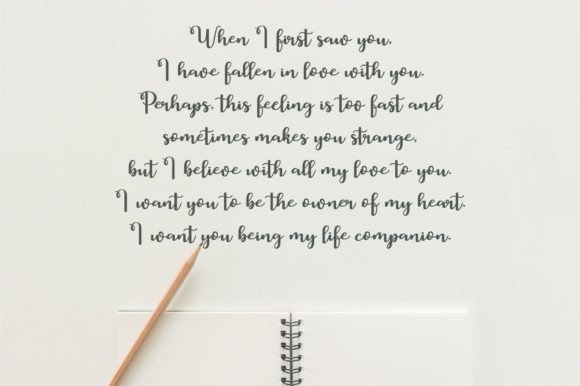 When I first saw you,
I have fallen in love with you.
Perhaps, this feeling is too fast and
sometimes makes you strange,
but I believe with all my love to you.
I want you to be the owner of my heart.
I want you being my life companion.